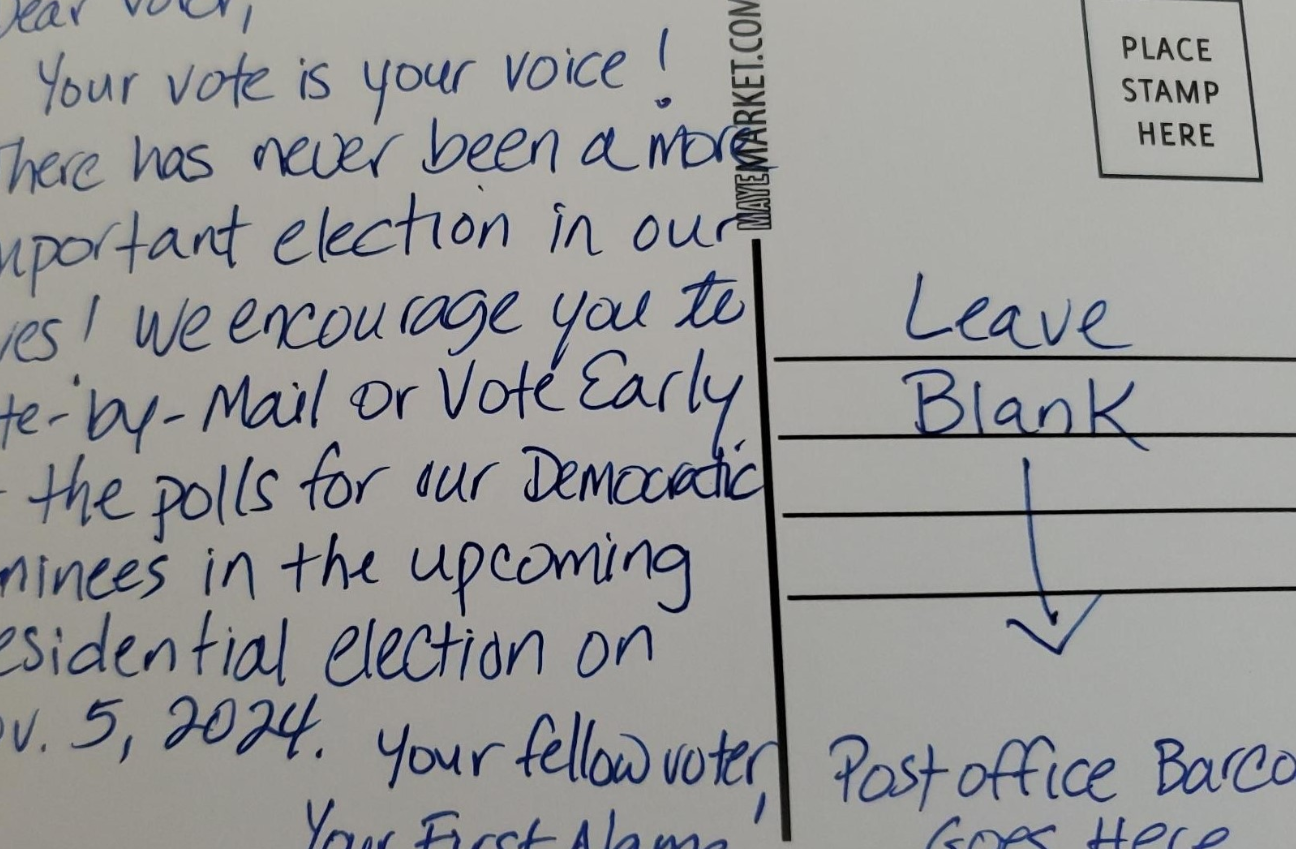 Dear Voter,
Your vote is your voice!
There has never been a more
mportant election in our
ves! We encourage you to
te-by-Mail or Vote Early
the polls for our Democratic
minees in the upcoming
esidential election on
ov. 5, 2024. Your fellow voter,
Your First Name
MAYEMARKET.COM
PLACE
STAMP
HERE
Leave
Blank
Post office Barco
Goes Here